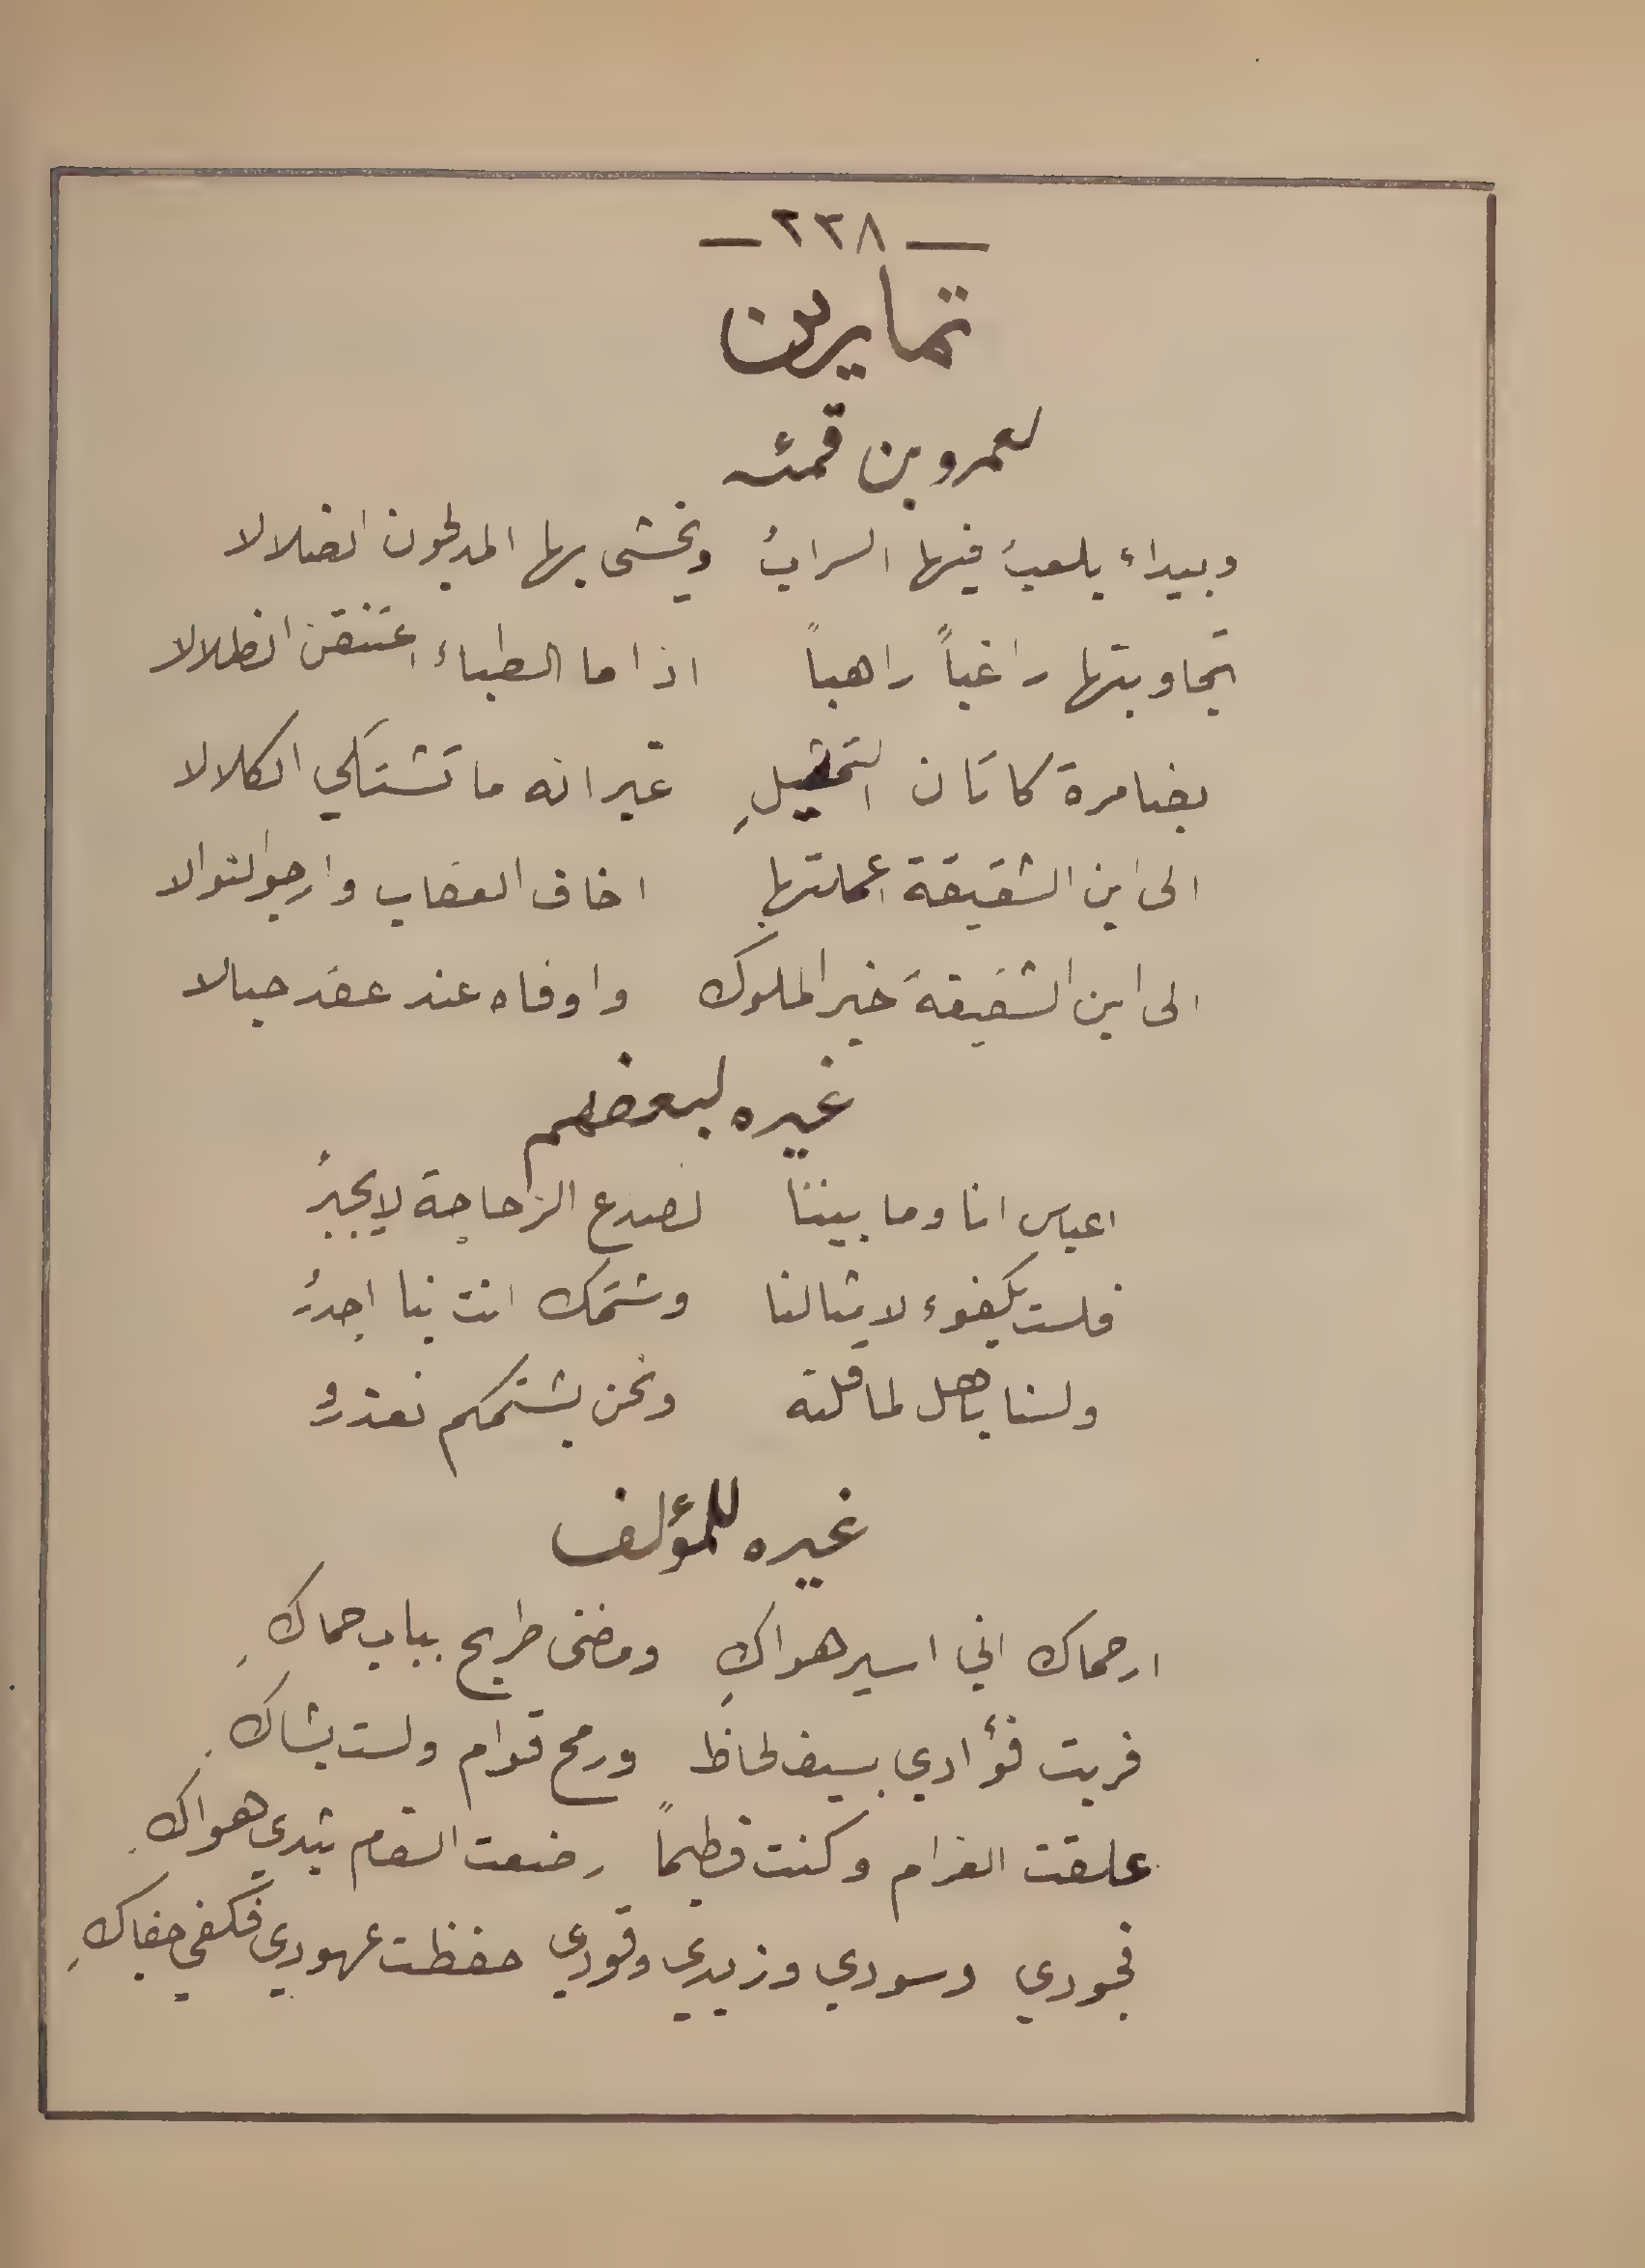 — ٢٣٨ —
تمارين
لعمرو بن قمئه
وبيداء يلعبُ فيها السرابُ ويخشى بها المدلجون الضلالا
تجاوبتها راغباً راهباً اذا ما الظباء اعتنقن الظلالا
بضامرة كاتان الثميلِ عيرانه ما تشتكي الكلالا
الى ابن الشقيقة اعملتها اخاف العقاب وارجو النوالا
الى ابن الشقيقة خير الملوك واوفاه عند عقد حبالا
غيره لبعضهم
اعباس انا وما بيننا لصدع الزجاجة لا يجبرُ
فلست بكفوء لا مثالنا وشتمك انت بنا اجدرُ
ولسنا باهل لما قلته ونحن بشتمكم نعذرو
غيره للمؤلف
ارحماك اني اسير هواكِ ومضنى طريح بباب حماكِ
فريت فؤادي بسيف لحاظ ورمح قوام ولست بشاكِ
علقت الغرام وكنت فطيماً رضعت السقام بثدي هواكِ
فجودي وسودي وزيدي وقودي حفظت عهودي فكفي جفاكِ